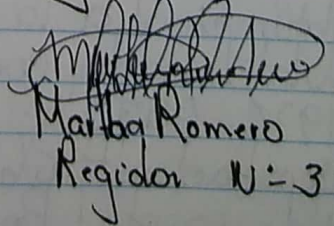 Martha Romero
Regidor N:- 3